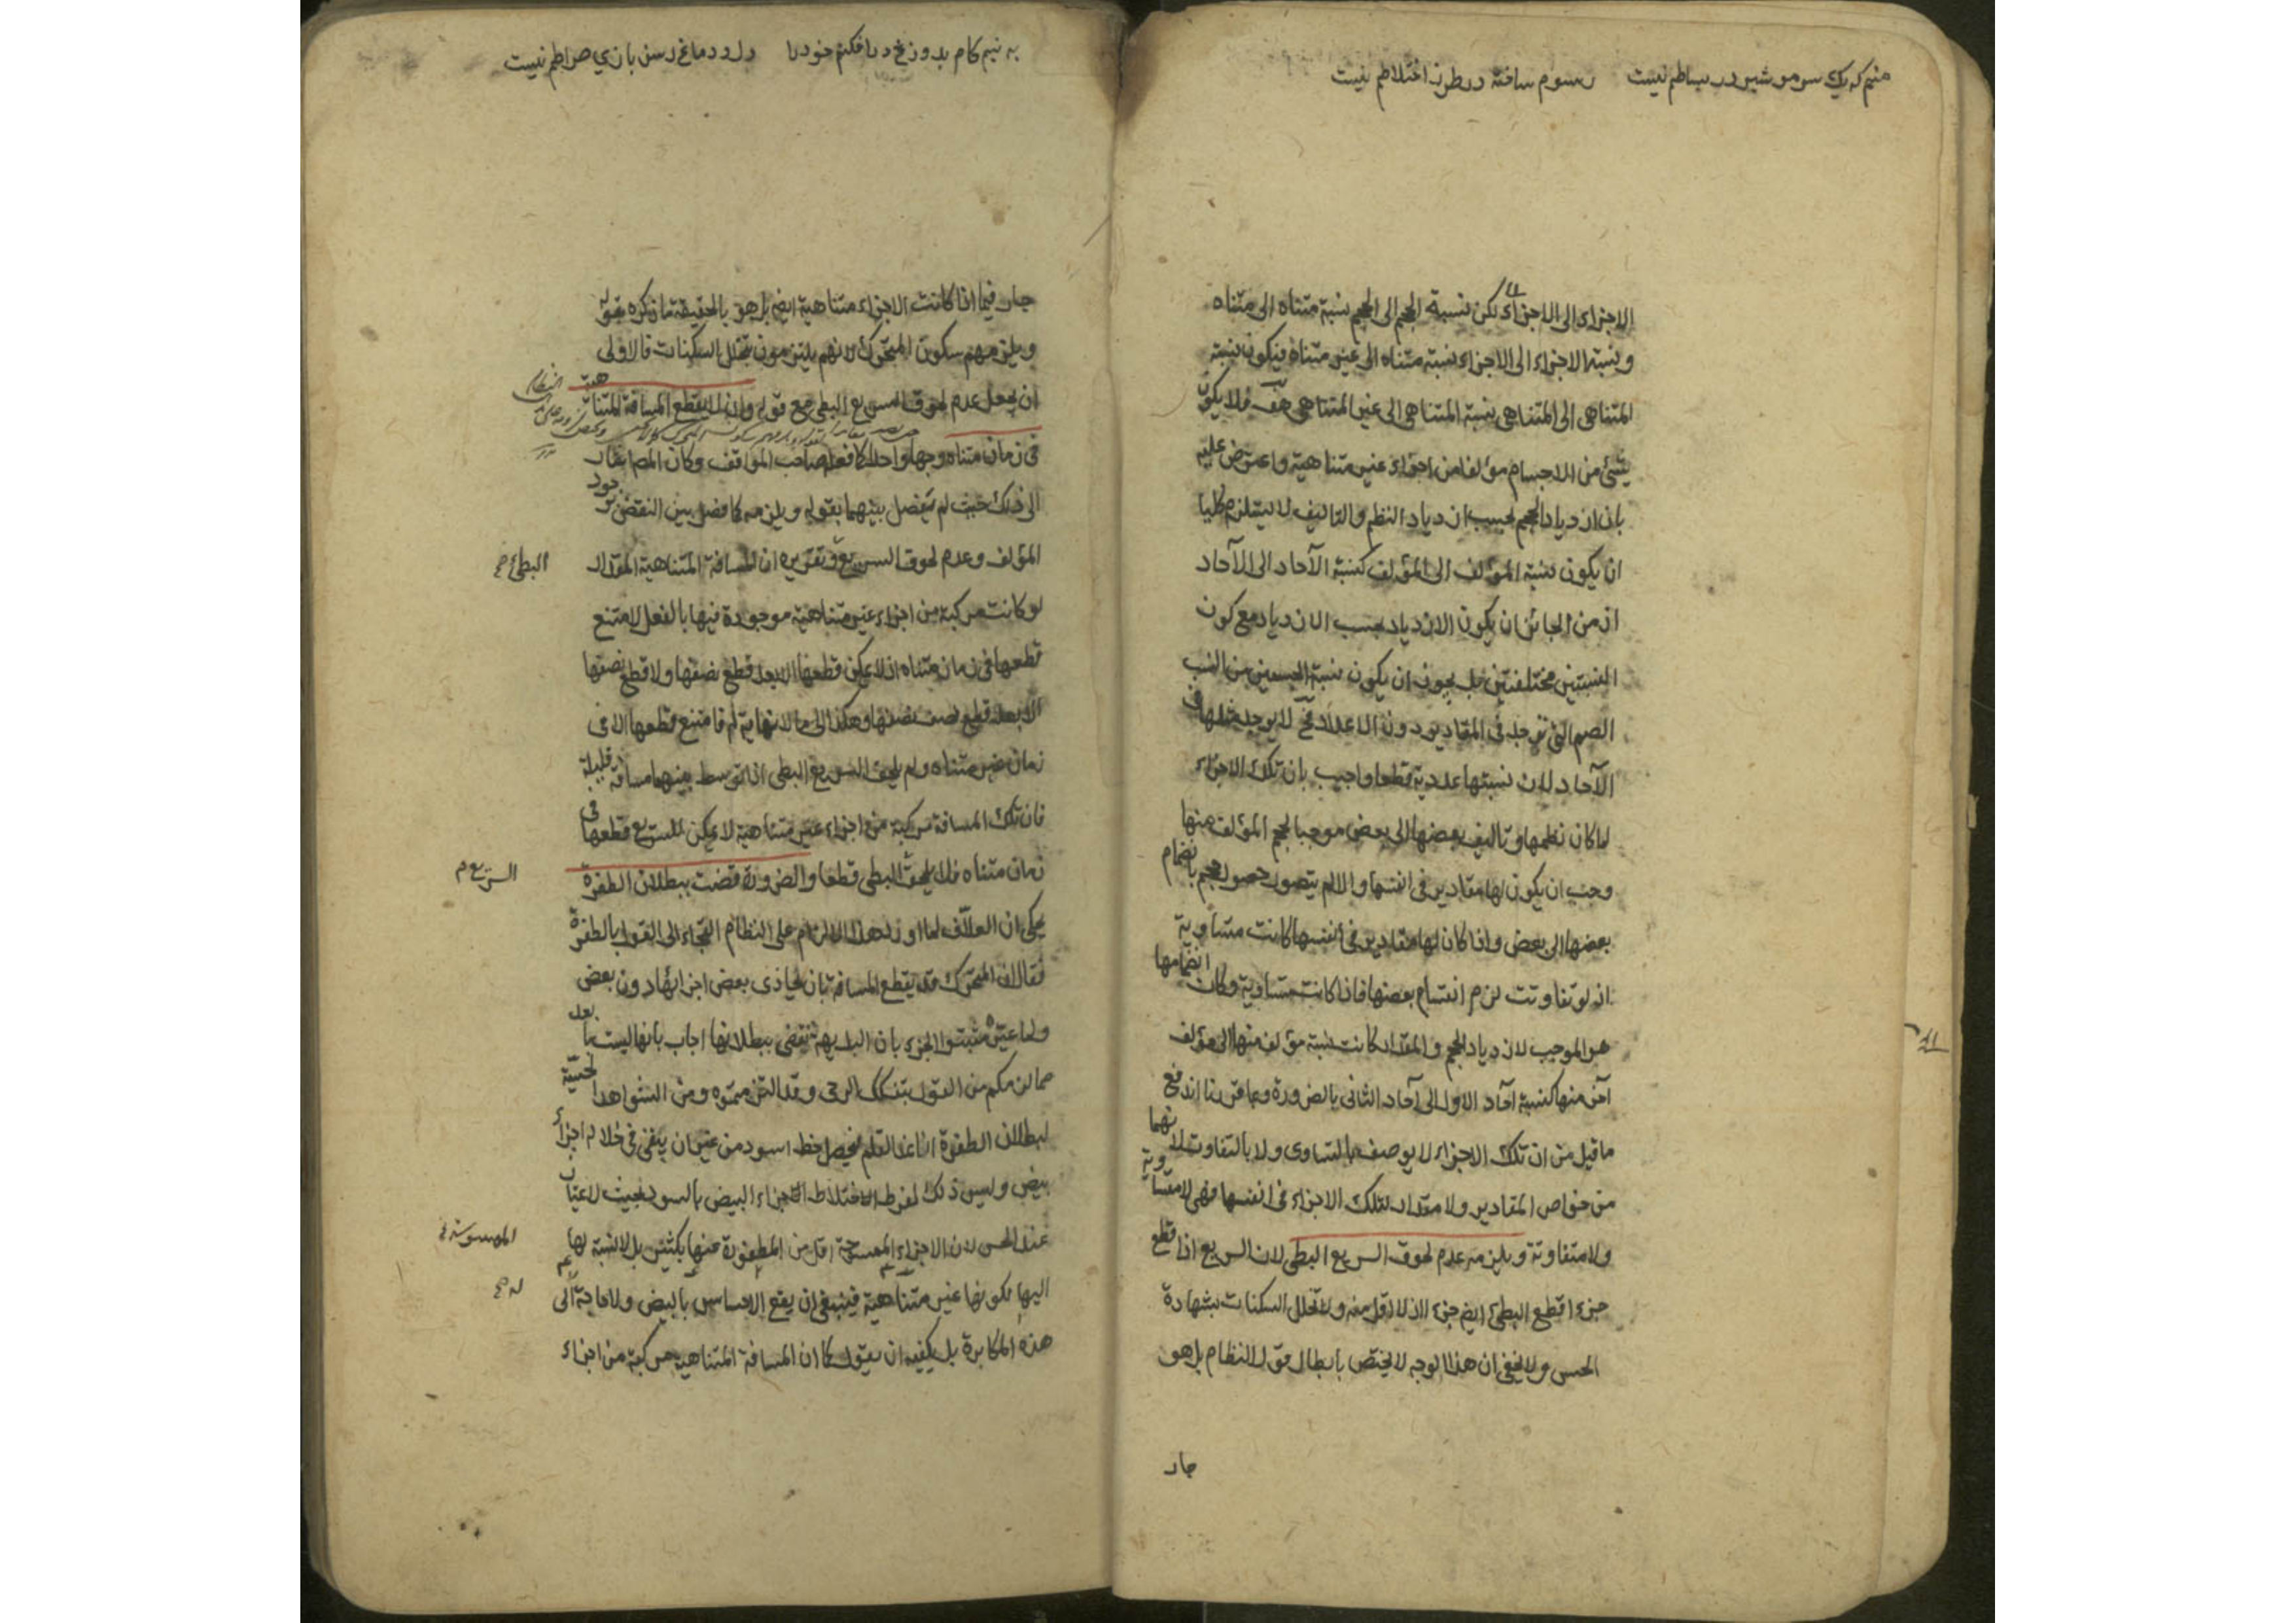 منم که یک سر مو شید در بساطم نیست رسوم ساخته در طرز اختلاطم نیست
الاجزاء الى الاجزاء لكن نسبة الحجم الى الحجم نسبة متناه الى متناه
ونسبة الاجزاء الى الاجزاء نسبة متناه الى غير متناه فيكون نسبة
المتناهى الى المتناهى نسبة المتناهى الى غير المتناهى هف فلا يكون
شئ من الاجسام مؤلفا من اجزاء غير متناهية واعترض عليه
بان ازدياد الحجم بحسب ازدياد النظم والتاليف لا يستلزم كليا
ان يكون نسبة المؤلف الى المؤلف كنسبة الآحاد الى الآحاد
اذ من الجائز ان يكون الازدياد بحسب الازدياد مع كون
النسبتين مختلفتين بل يجوز ان يكون نسبة الجسمين من النسب
الصم التى توجد فى المقادير دون الاعداد فح لا يوجد مثلها فى
الآحاد لان نسبتها عددية قطعا واجيب بان تلك الاجزاء
لما كان نظمها وتاليف بعضها الى بعض موجبا لحجم المؤلف منها
وجب ان يكون لها مقادير فى انفسها والا لم يتصور حصول حجم بانضمام
بعضها الى بعض واذا كان لها مقادير فى انفسها كانت متساوية
اذ لو تفاوتت لزم انقسام بعضها فاذا كانت متساوية وكان انضمامها
هو الموجب لازدياد الحجم والمقدار كانت نسبة مؤلف منها الى مؤلف
آخر منها كنسبة آحاد الاول الى آحاد الثانى بالضرورة وبما قررنا اندفع
ما قيل من ان تلك الاجزاء لا يوصف بالتساوى ولا بالتفاوت لانهما
من خواص المقادير ولا مقدار لتلك الاجزاء فى انفسها فهى لا متساوية
ولا متفاوتة ويلزمه عدم لحوق السريع البطى لان السريع اذا قطع
جزءا قطع البطئ ايضا جزءا اذ لا اقل منه ولا تخلل السكنات بشهادة
الحس ولا يخفى ان هذا الوجه لا يختص بابطال قول النظام بل هو
جار
به نیم کام بدوزخ در افکنم خود را دل و دماغ رسن بازی صراطم نیست
جار فيما اذا كانت الاجزاء متناهية ايضا بل هو بالحقيقة ما ذكره بقوله
ويلزمهم سكون المتحرك لانهم يلتزمون تخلل السكنات فالاولى
ان يجعل عدم لحوق السريع البطى مع قوله وان لا يقطع المسافة المتناهية
فى زمان متناه وجها واحدا كما فعله صاحب المواقف وكان المص اشار
الى ذلك حيث لم يفصل بينهما بقوله ويلزمه كما فصل بين النقض بوجود
المؤلف وعدم لحوق السريع وتقريره ان المسافة المتناهية المقدار
البطئ صح
لو كانت مركبة من اجزاء غير متناهية موجودة فيها بالفعل لامتنع
قطعها فى زمان متناه اذ لا يمكن قطعها الا بعد قطع نصفها ولا قطع نصفها
الا بعد قطع نصف نصفها وهكذا الى ما لا نهاية له فامتنع قطعها الا فى
زمان غير متناه ولم يلحق السريع البطى اذا توسط بينهما مسافة قليلة
فان تلك المسافة مركبة من اجزاء غير متناهية لا يمكن للسريع قطعها فى
زمان متناه فلا يلحق البطى قطعا والضرورة قضت ببطلان الطفرة
يحكى ان العلاف لما اورد هذا الالزام على النظام التجاء الى القول بالطفرة
فقال ان المتحرك قد يقطع المسافة بان يحاذى بعض اجزائها دون بعض
ولما عيره مثبتوا الجزء بان البديهة تقضى ببطلانها اجاب بانها ليست بابعد
مما لزمكم من القول بتفكك الرحى وقد التزمتموه ومن الشواهد الحسية
لبطلان الطفرة انا نمد القلم فيحصل خط اسود من غير ان يبقى فى خلاله اجزاء
بيض وليس ذلك لفرط اختلاط الاجزاء البيض بالسود بحيث لا يمتاز
عند الحس لان الاجزاء الممسوحة اقل من المطفورة عنها بكثير بل لا نسبة لها
اليها لكونها غير متناهية فينبغى ان يقع الاحساس بالبيض ولا حاجة الى
هذه المكابرة بل يكفيه ان يقول كما ان المسافة المتناهية مركبة من اجزاء